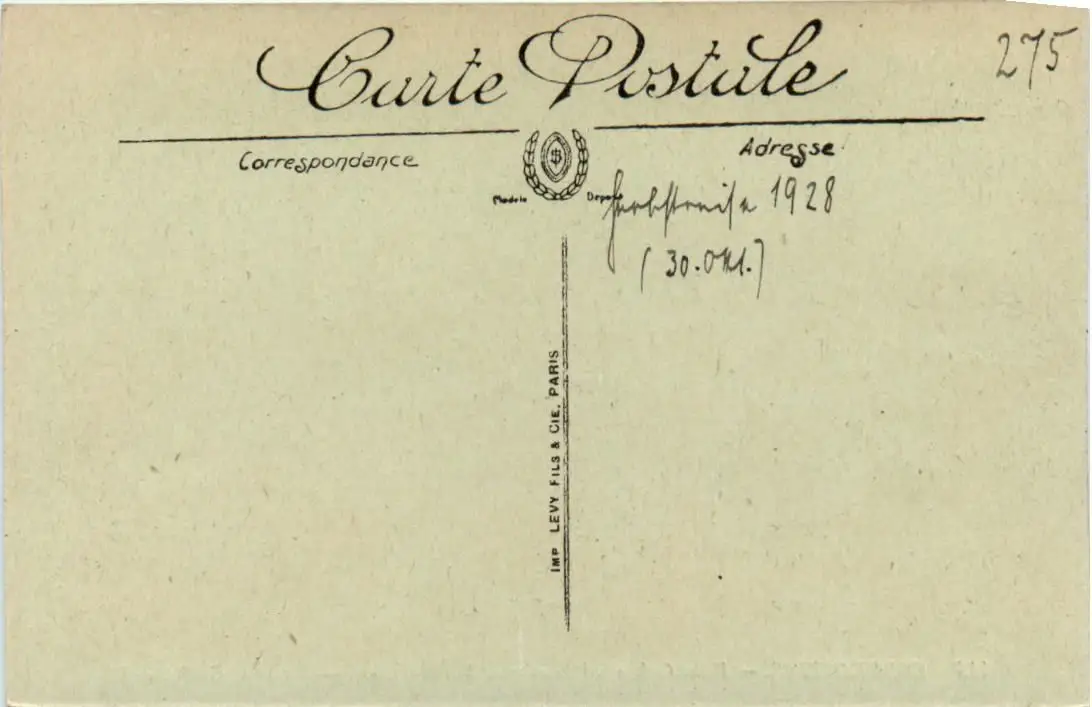 Carte Postale
275
Correspondance
Adresse
Modèle Déposé
Herbstreise 1928
(30. Okt.)
IMP LEVY FILS & CIE. PARIS